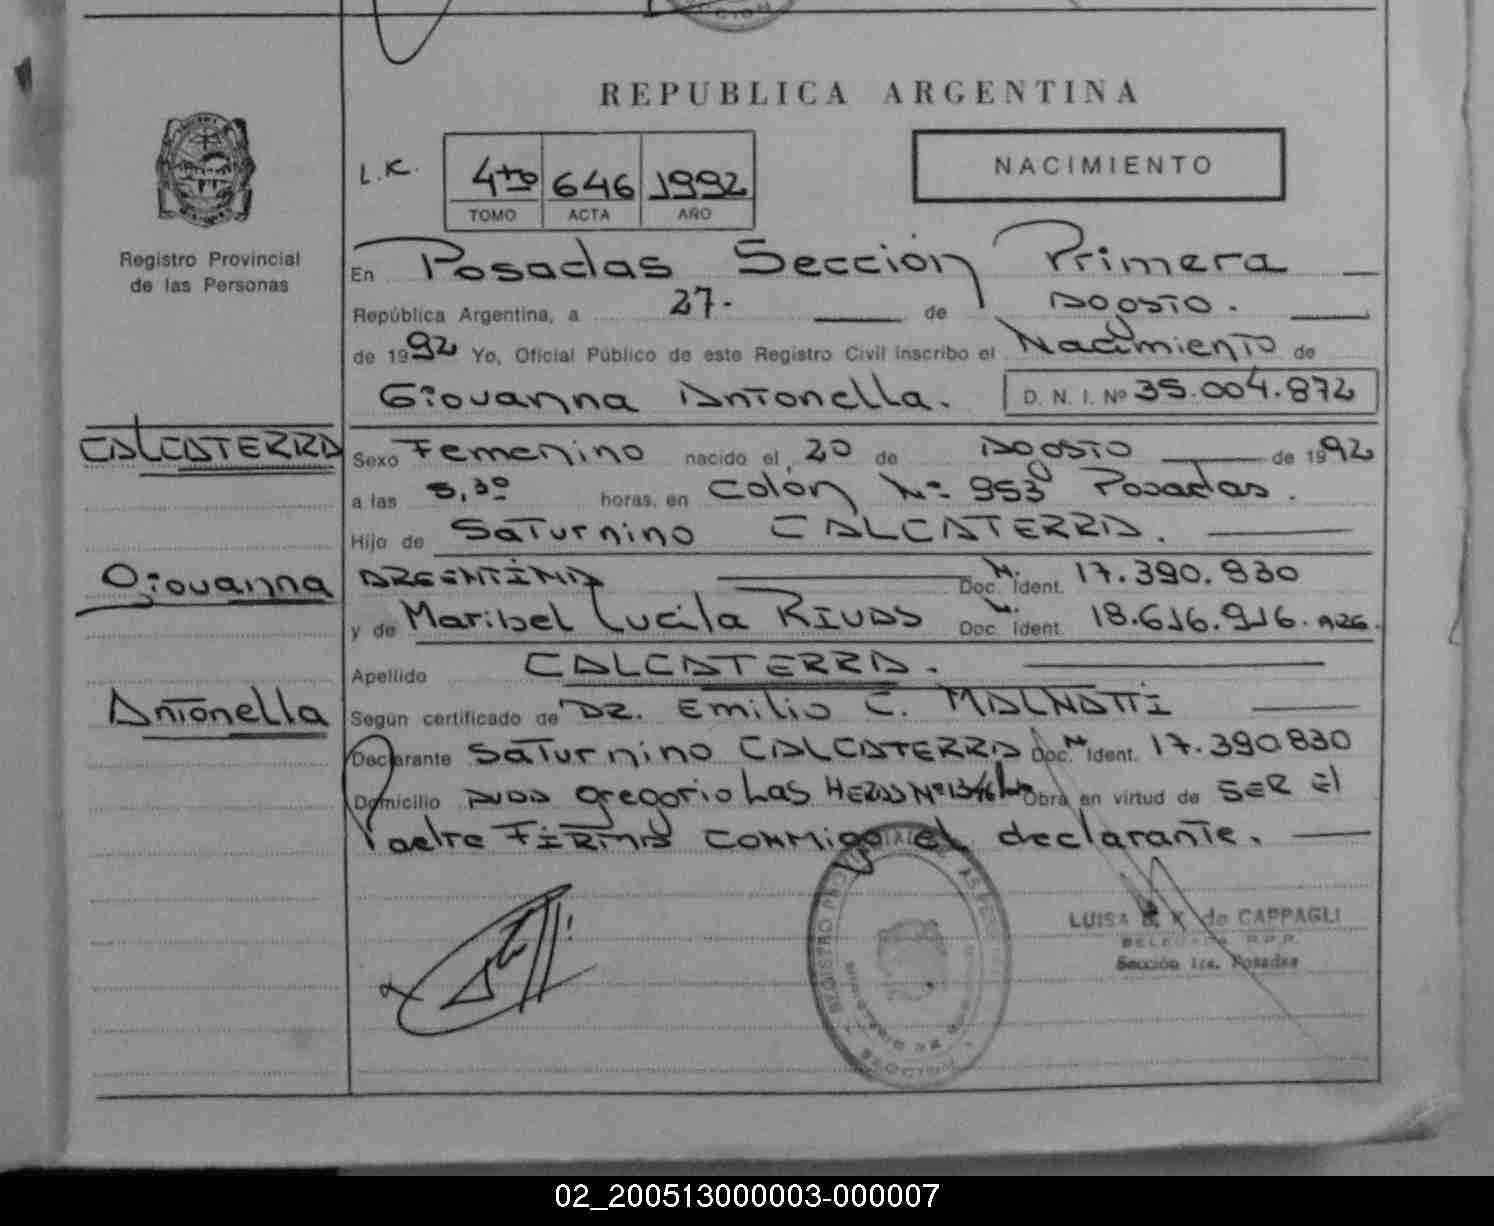 REPUBLICA ARGENTINA
L.K.
4to 646 1992
TOMO ACTA AÑO
NACIMIENTO
Registro Provincial
de las Personas
En Posadas Sección Primera
República Argentina, a 27. de Agosto.
de 1992 Yo, Oficial Público de este Registro Civil inscribo el Nacimiento de
Giovanna Antonella. D. N. I. Nº 35.004.872
CALCATERRA
Sexo Femenino nacido el 20 de Agosto de 1992
a las 5,30 horas, en Colón Nº 953 Posadas.
Hijo de Saturnino CALCATERRA.
Giovanna
ARGENTINA Doc. N. Ident. 17.390.830
y de Maribel Lucila RIVAS Doc. N. Ident. 18.616.916. ARG.
Apellido CALCATERRA.
Antonella
Según certificado de DR. Emilio C. MALNATTI
Declarante Saturnino CALCATERRA Doc. N Ident. 17.390830
Domicilio AVDA gregorio Las HERAS Nº 1346 Obra en virtud de SER El
Padre FIRMA conmigo el declarante.
LUISA K. de CAPPAGLI
DELEGADA R.P.P.
Sección 1ra. Posadas
02_200513000003-000007